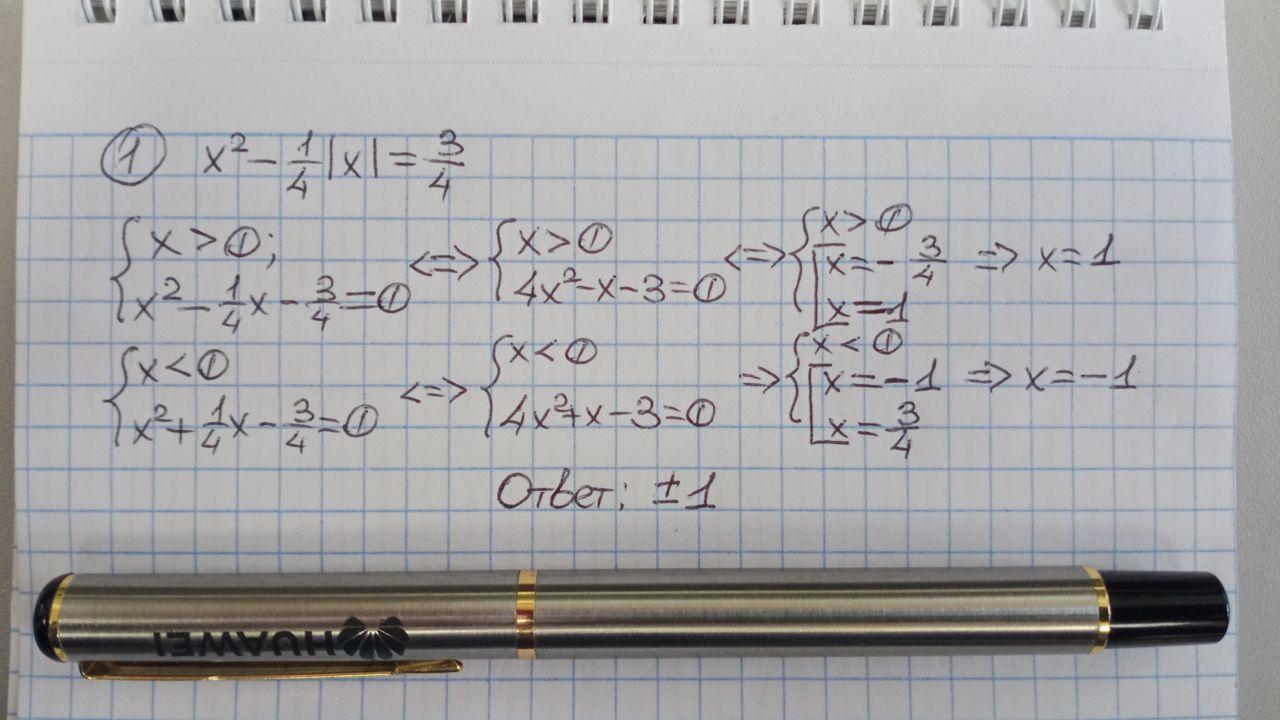 ① x² - 1/4|x| = 3/4
{ x > 0; x² - 1/4x - 3/4 = 0 <=> { x > 0 4x² - x - 3 = 0 <=> { x > 0 [ x = - 3/4 x = 1 => x = 1
{ x < 0 x² + 1/4x - 3/4 = 0 <=> { x < 0 4x² + x - 3 = 0 => { x < 0 [ x = -1 x = 3/4 => x = -1
Ответ: ±1
HUAWEI